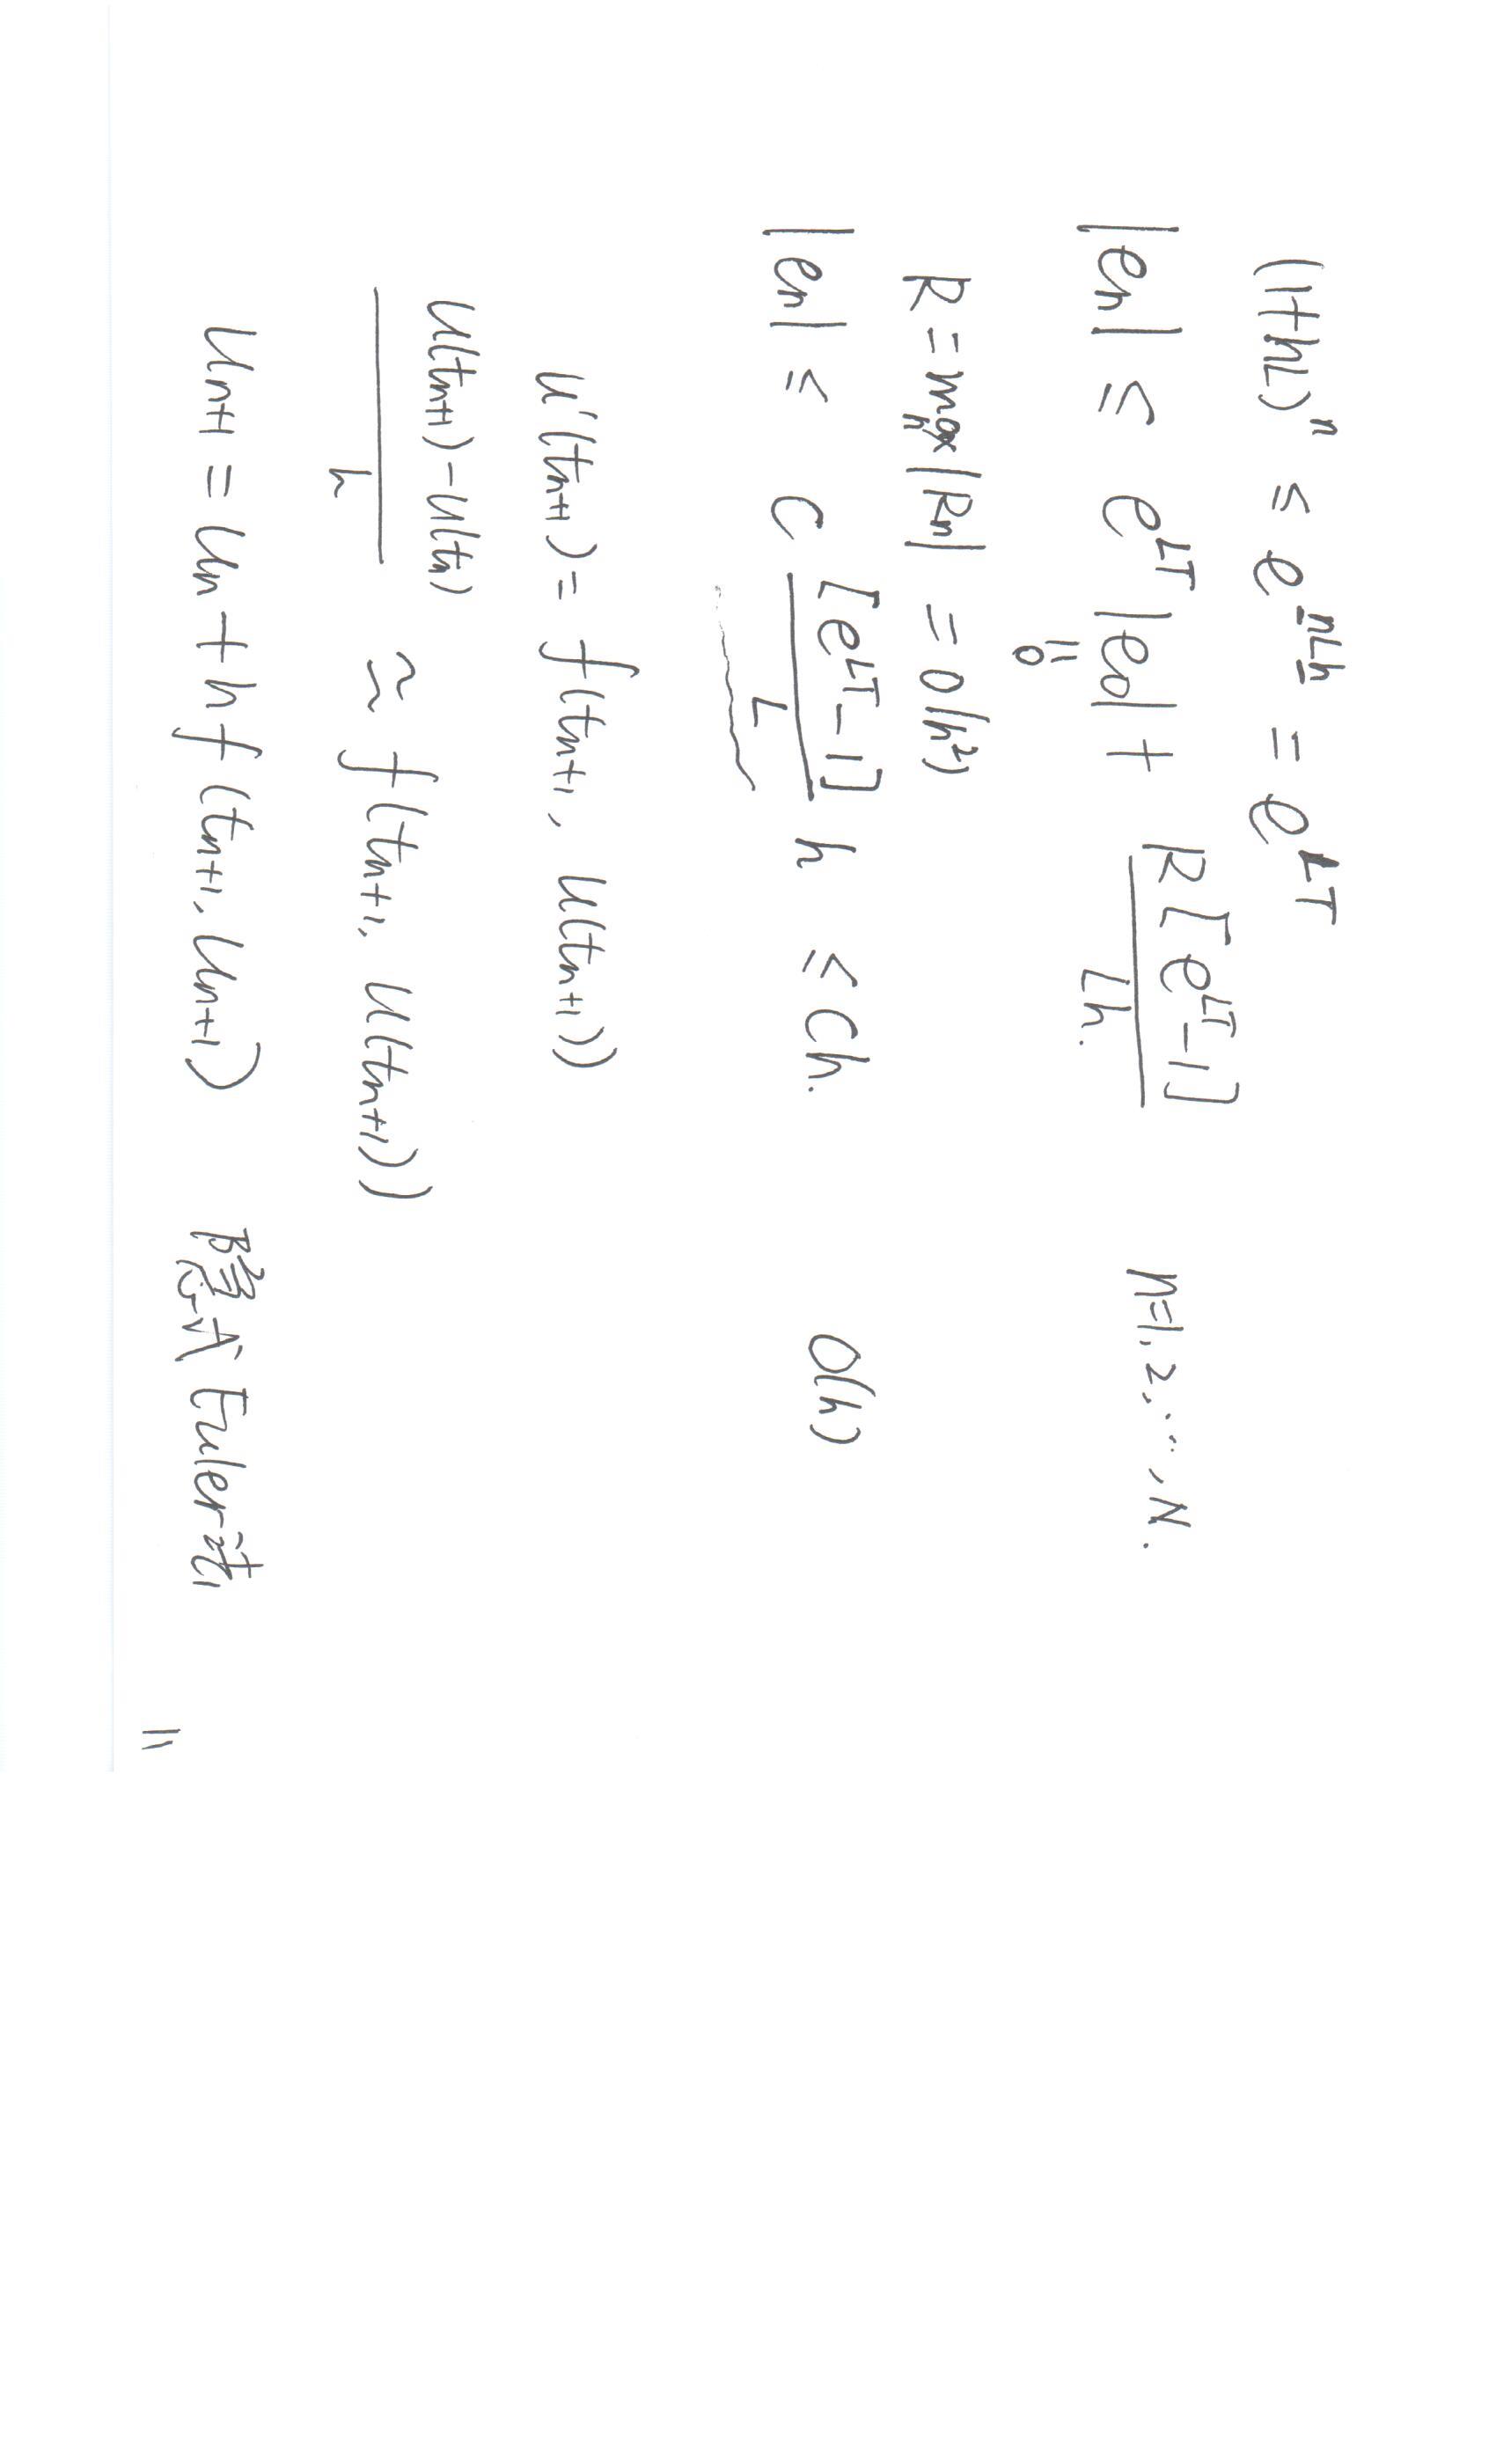 (1+hL)^n ≤ e^{nLh} = e^{LT}
|e_n| ≤ e^{LT} |e_0| + \frac{R[e^{LT}-1]}{Lh.} n=1,2,⋯,N.
|| 0
R = \max_n |R_n| = O(h^2)
|e_n| ≤ C \frac{[e^{LT}-1]}{L} h ≤ Ch. O(h)
u'(t_{n+1}) = f(t_{n+1}, u(t_{n+1}))
\frac{u(t_{n+1})-u(t_n)}{h} ≃ f(t_{n+1}, u(t_{n+1}))
u_{n+1} = u_n + hf(t_{n+1}, u_{n+1}) 隐式Euler法
11